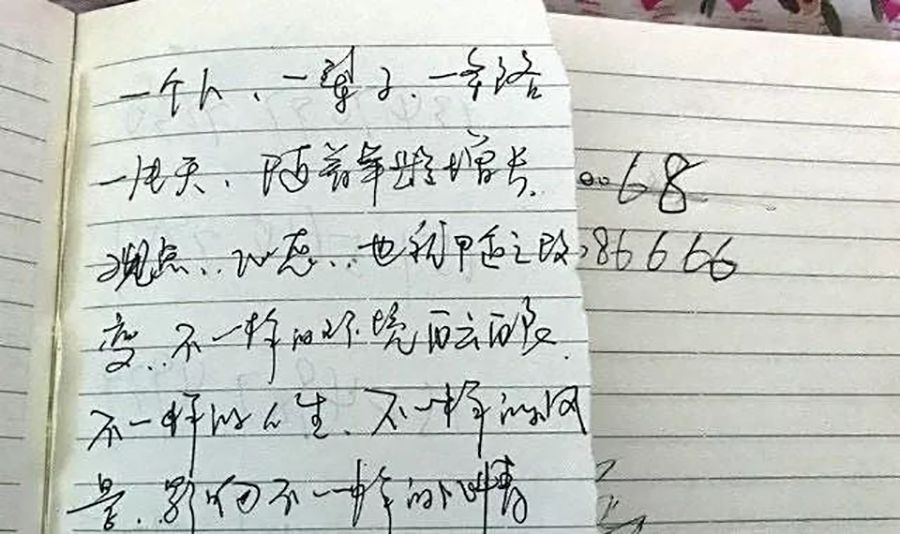 一个人、一辈子、一条路
一片天、随着年龄增长.
观点、心态、也利用随之改
变、不一样的环境
不一样的人生、不一样的风
景、影响不一样的心情
68
86666